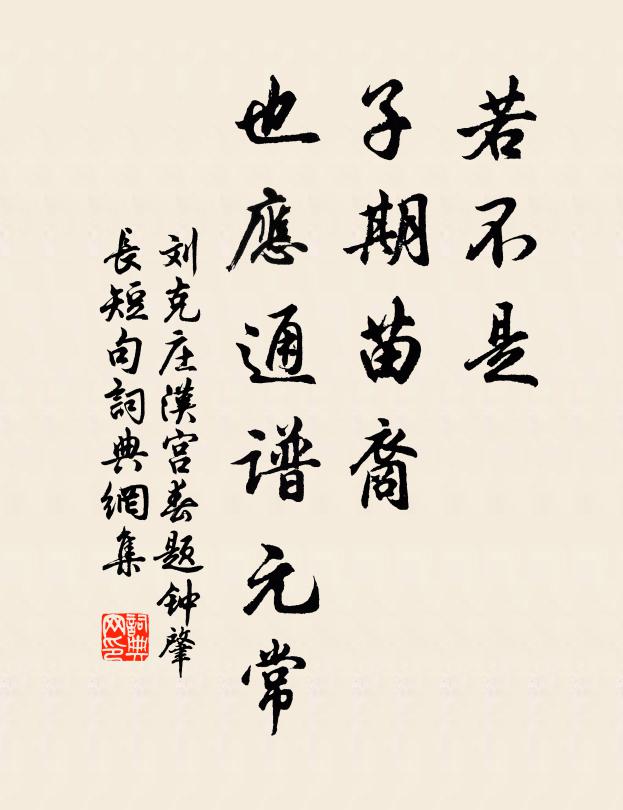 若不是
子期苗裔
也應通谱元常
刘克庄漢宫春题钟肇
長短句詞典網集
詞典
网印